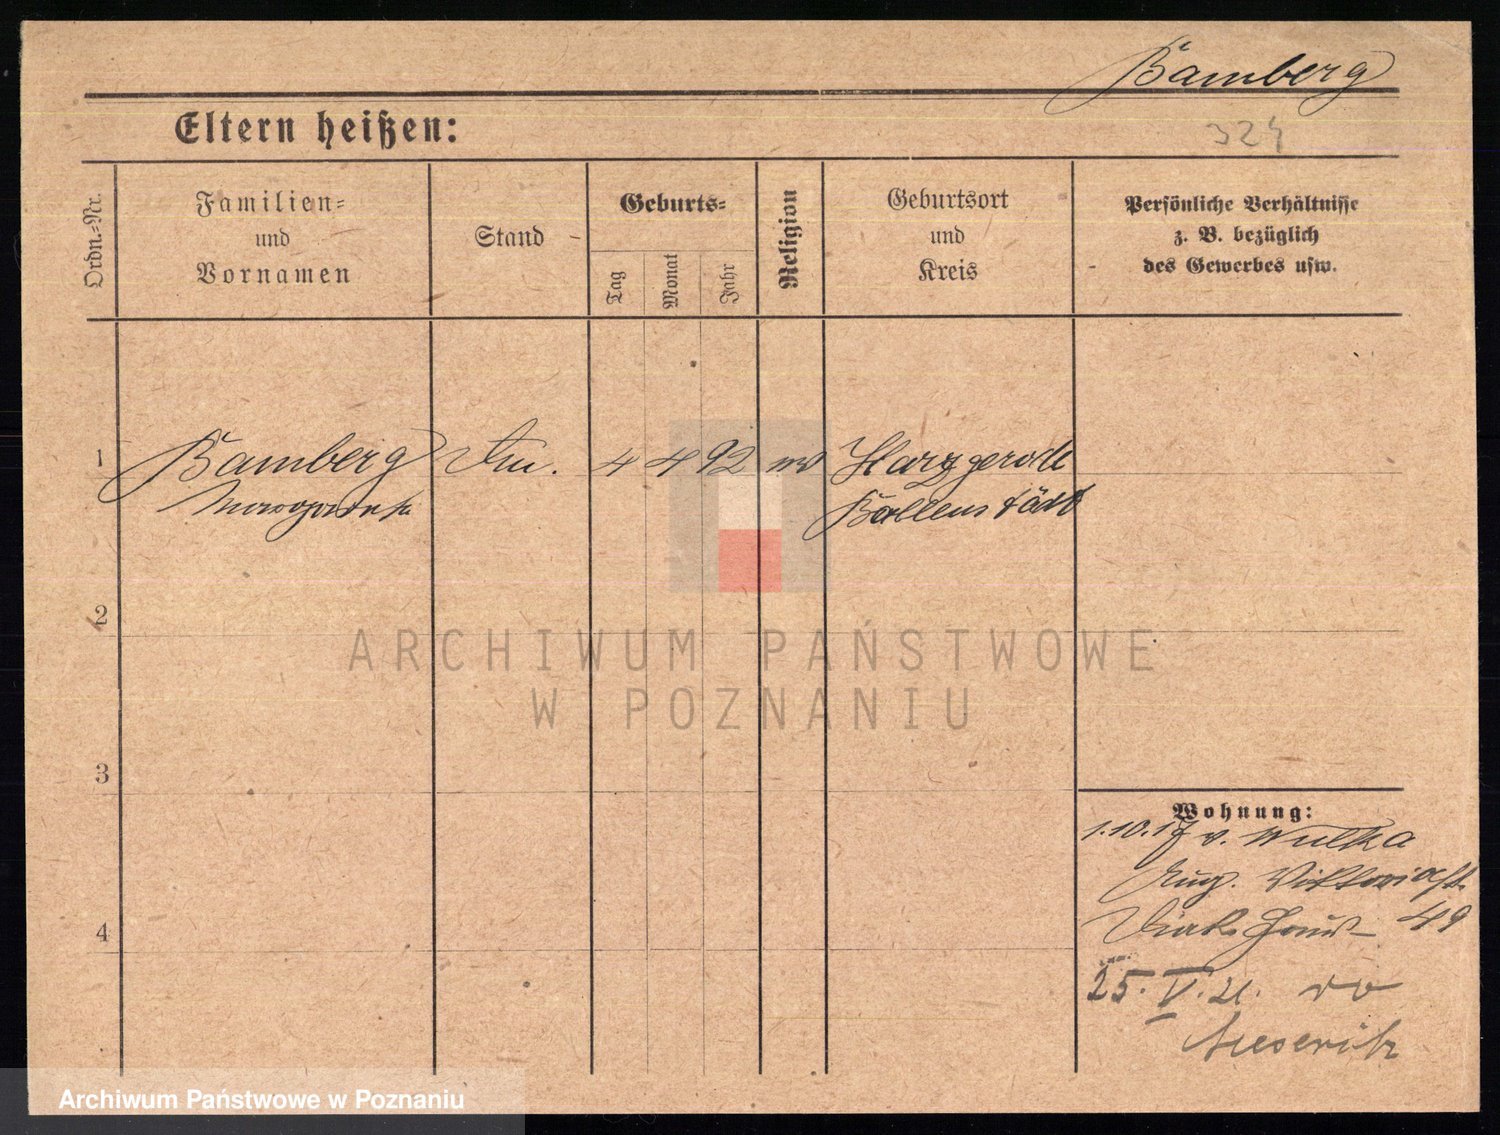 Bamberg
324
Eltern heißen:
Ordn.-Nr.
Familien-
und
Vornamen
Stand
Geburts-
Tag
Monat
Jahr
Religion
Geburtsort
und
Kreis
Persönliche Verhältnisse
z. B. bezüglich
des Gewerbes usw.
1
Bamberg
Margarete
4 4 92
Harzgerode
Ballenstädt
2
3
4
Wohnung:
1.10.17 v. Wulka
Aug. Viktoriastr.
49
25. V. 21.
Meseritz
ARCHIWUM PAŃSTWOWE
W POZNANIU
Archiwum Państwowe w Poznaniu